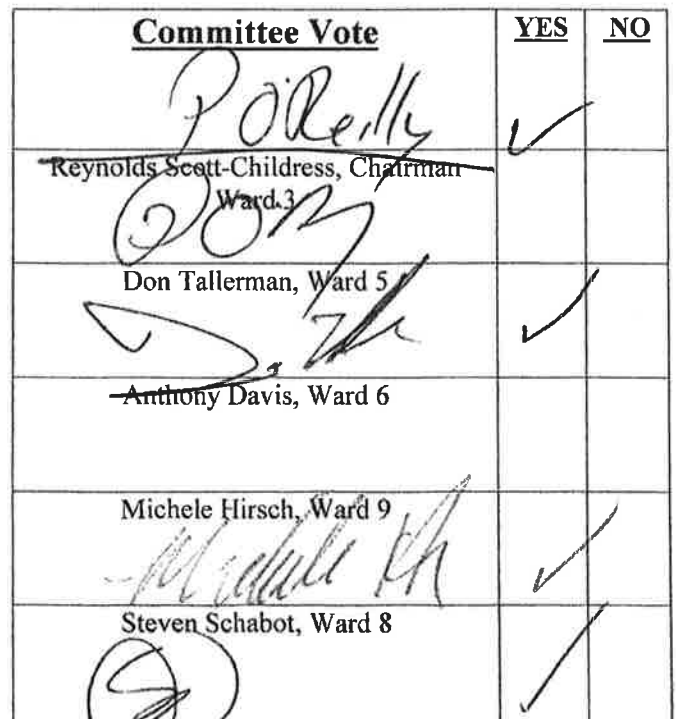 Committee Vote YES NO
P O'Reilly ✓
Reynolds Scott-Childress, Chairman
Ward 3
Don Tallerman, Ward 5
✓
Anthony Davis, Ward 6
Michele Hirsch, Ward 9
✓
Steven Schabot, Ward 8
✓